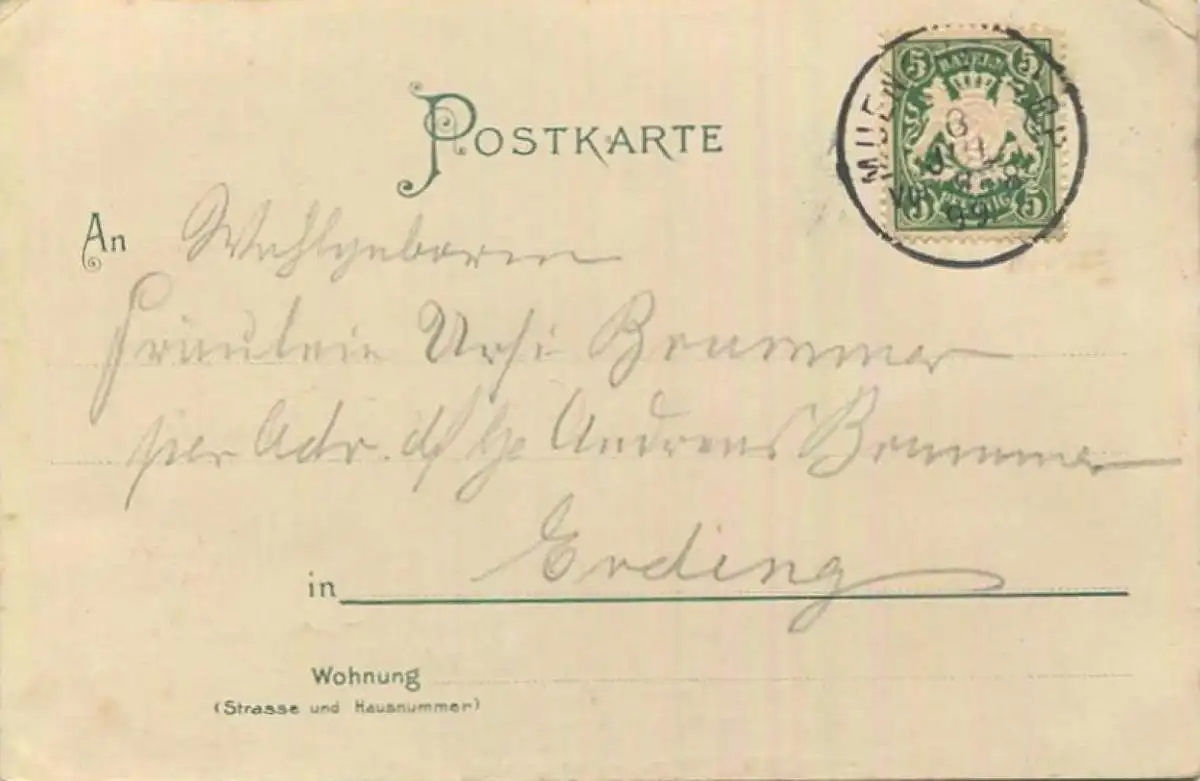 BAYERN
5 5
5 PFENNIG 5
8
99
POSTKARTE
An Wohlgeboren
Fräulein Ursi Brummer
per Adr. Andreas Brummer
in Erding
Wohnung
(Strasse und Hausnummer)